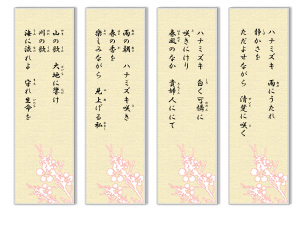 ハナミズキ 雨にうたれ
静かさを
ただよせながら 清楚に咲く
ハナミズキ 白く可憐に
咲きにけり
春風のなか 貴婦人にて
雨の朝 ハナミズキ咲き
春の香を
楽しみながら 見上げる私
山の歌 大地に響け
川の歌
海に流れよ 守れ生命を